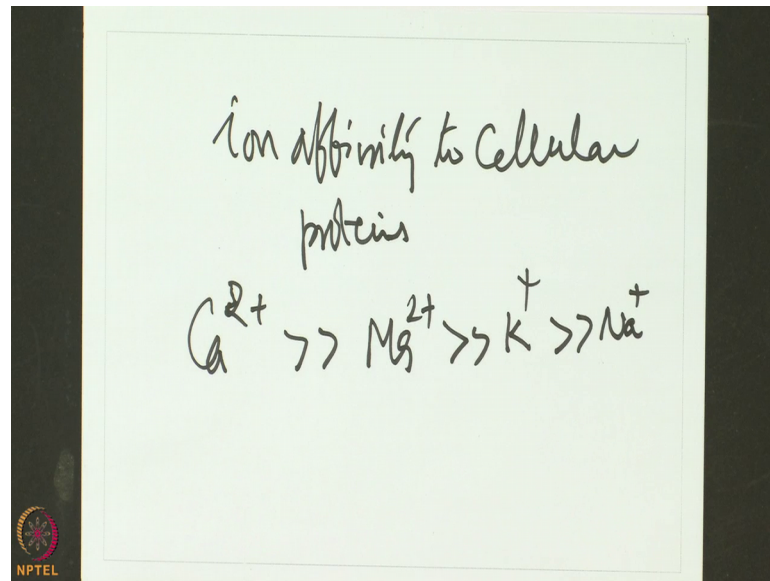 ion affinity to Cellular
proteins
Ca²⁺ >> Mg²⁺ >> K⁺ >> Na⁺
NPTEL